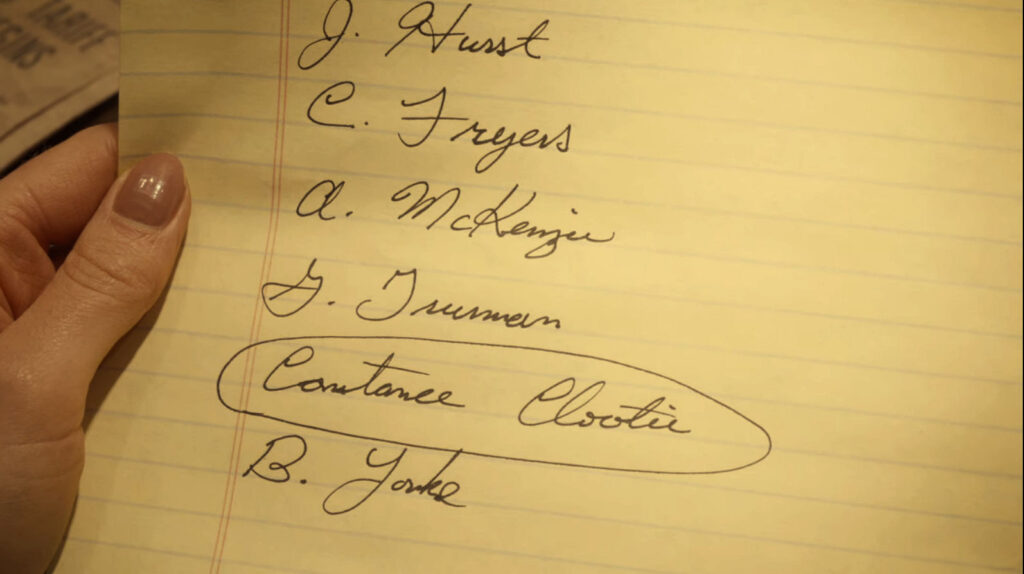 TARIFF
J. Hurst
C. Fryers
A. McKenzie
G. Truman
Constance Clootie
B. Yorke